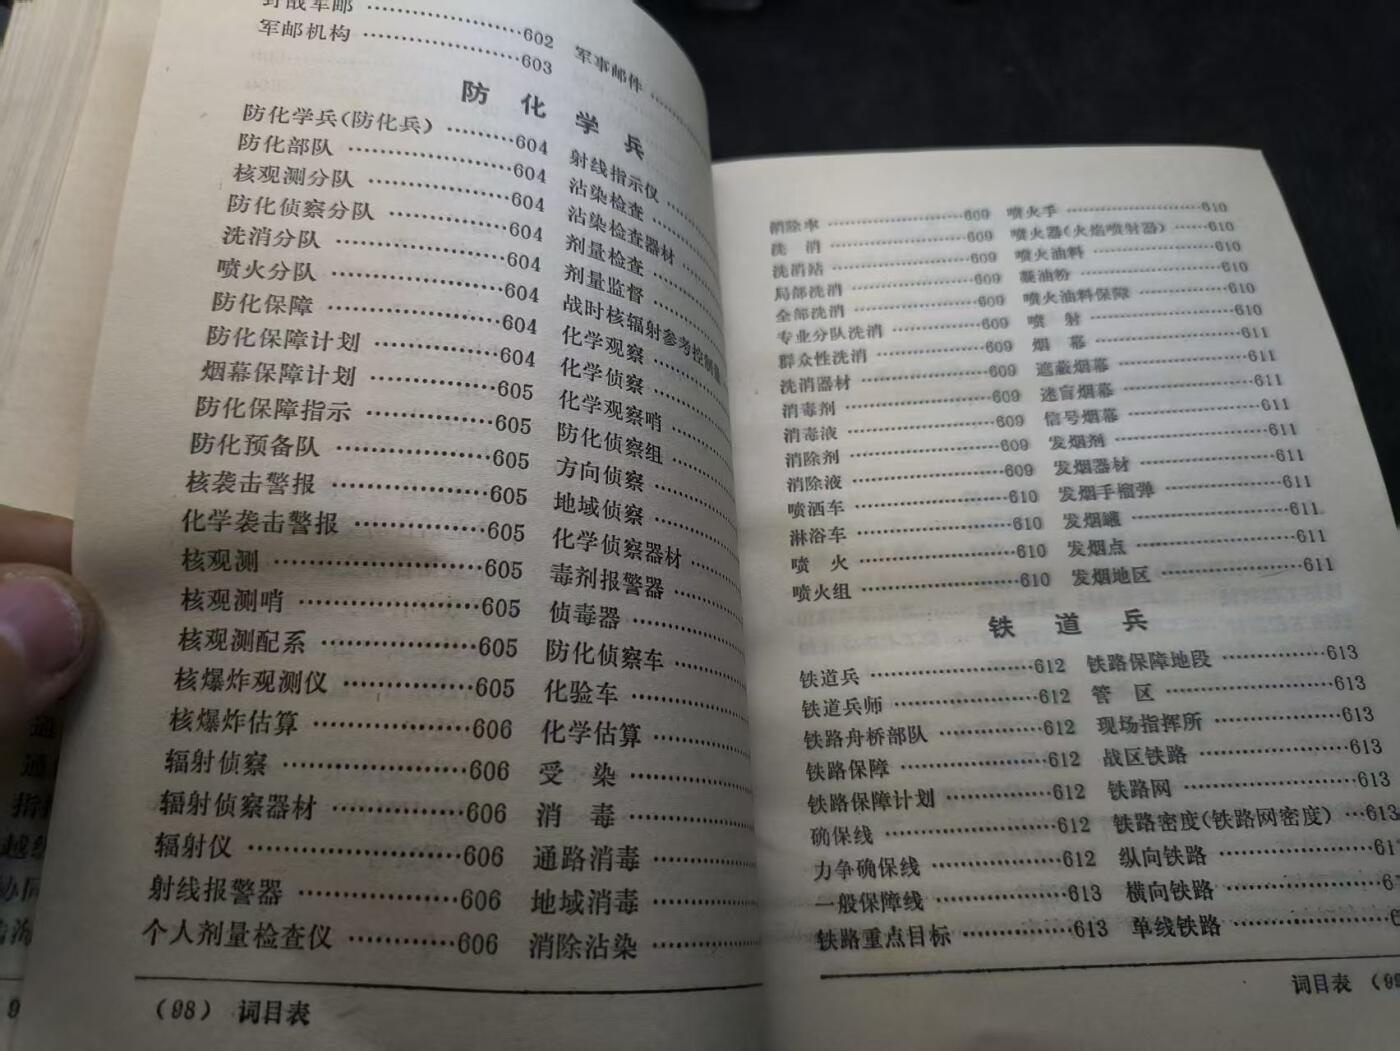 野战军邮 …………………602
军邮机构 …………………603
军事邮件 ………
防化学兵
防化学兵(防化兵) ………604
防化部队 …………………604
核观测分队 ………………604
防化侦察分队 ……………604
洗消分队 …………………604
喷火分队 …………………604
防化保障 …………………604
防化保障计划 ……………604
烟幕保障计划 ……………605
防化保障指示 ……………605
防化预备队 ………………605
核袭击警报 ………………605
化学袭击警报 ……………605
核观测 ……………………605
核观测哨 …………………605
核观测配系 ………………605
核爆炸观测仪 ……………605
核爆炸估算 ………………606
辐射侦察 …………………606
辐射侦察器材 ……………606
辐射仪 ……………………606
射线报警器 ………………606
个人剂量检查仪 …………606
射线指示仪 ………
沾染检查 …………
沾染检查器材 ……
剂量检查 …………
剂量监督 …………
战时核辐射参考控制量
化学观察 …………
化学侦察 …………
化学观察哨 ………
防化侦察组 ………
方向侦察 …………
地域侦察 …………
化学侦察器材 ……
毒剂报警器 ………
侦毒器 ……………
防化侦察车 ………
化验车 ……………
化学估算 …………
受 染 ……………
消 毒 ……………
通路消毒 …………
地域消毒 …………
消除沾染 …………
(98) 词目表
消除率 ……………………609
洗 消 ……………………609
洗消站 ……………………609
局部洗消 …………………609
全部洗消 …………………609
专业分队洗消 ……………609
群众性洗消 ………………609
洗消器材 …………………609
消毒剂 ……………………609
消毒液 ……………………609
消除剂 ……………………609
消除液 ……………………609
喷洒车 ……………………610
淋浴车 ……………………610
喷 火 ……………………610
喷火组 ……………………610
喷火手 ……………………610
喷火器(火焰喷射器) ……610
喷火油料 …………………610
凝油粉 ……………………610
喷火油料保障 ……………610
喷 射 ……………………610
烟 幕 ……………………611
遮蔽烟幕 …………………611
迷盲烟幕 …………………611
信号烟幕 …………………611
发烟剂 ……………………611
发烟器材 …………………611
发烟手榴弹 ………………611
发烟罐 ……………………611
发烟点 ……………………611
发烟地区 …………………611
铁道兵
铁道兵 ……………………612
铁道兵师 …………………612
铁路舟桥部队 ……………612
铁路保障 …………………612
铁路保障计划 ……………612
确保线 ……………………612
力争确保线 ………………612
一般保障线 ………………613
铁路重点目标 ……………613
铁路保障地段 ……………613
管 区 ……………………613
现场指挥所 ………………613
战区铁路 …………………613
铁路网 ……………………613
铁路密度(铁路网密度) …613
纵向铁路 …………………61
横向铁路 …………………6
单线铁路 …………………6
词目表 (99